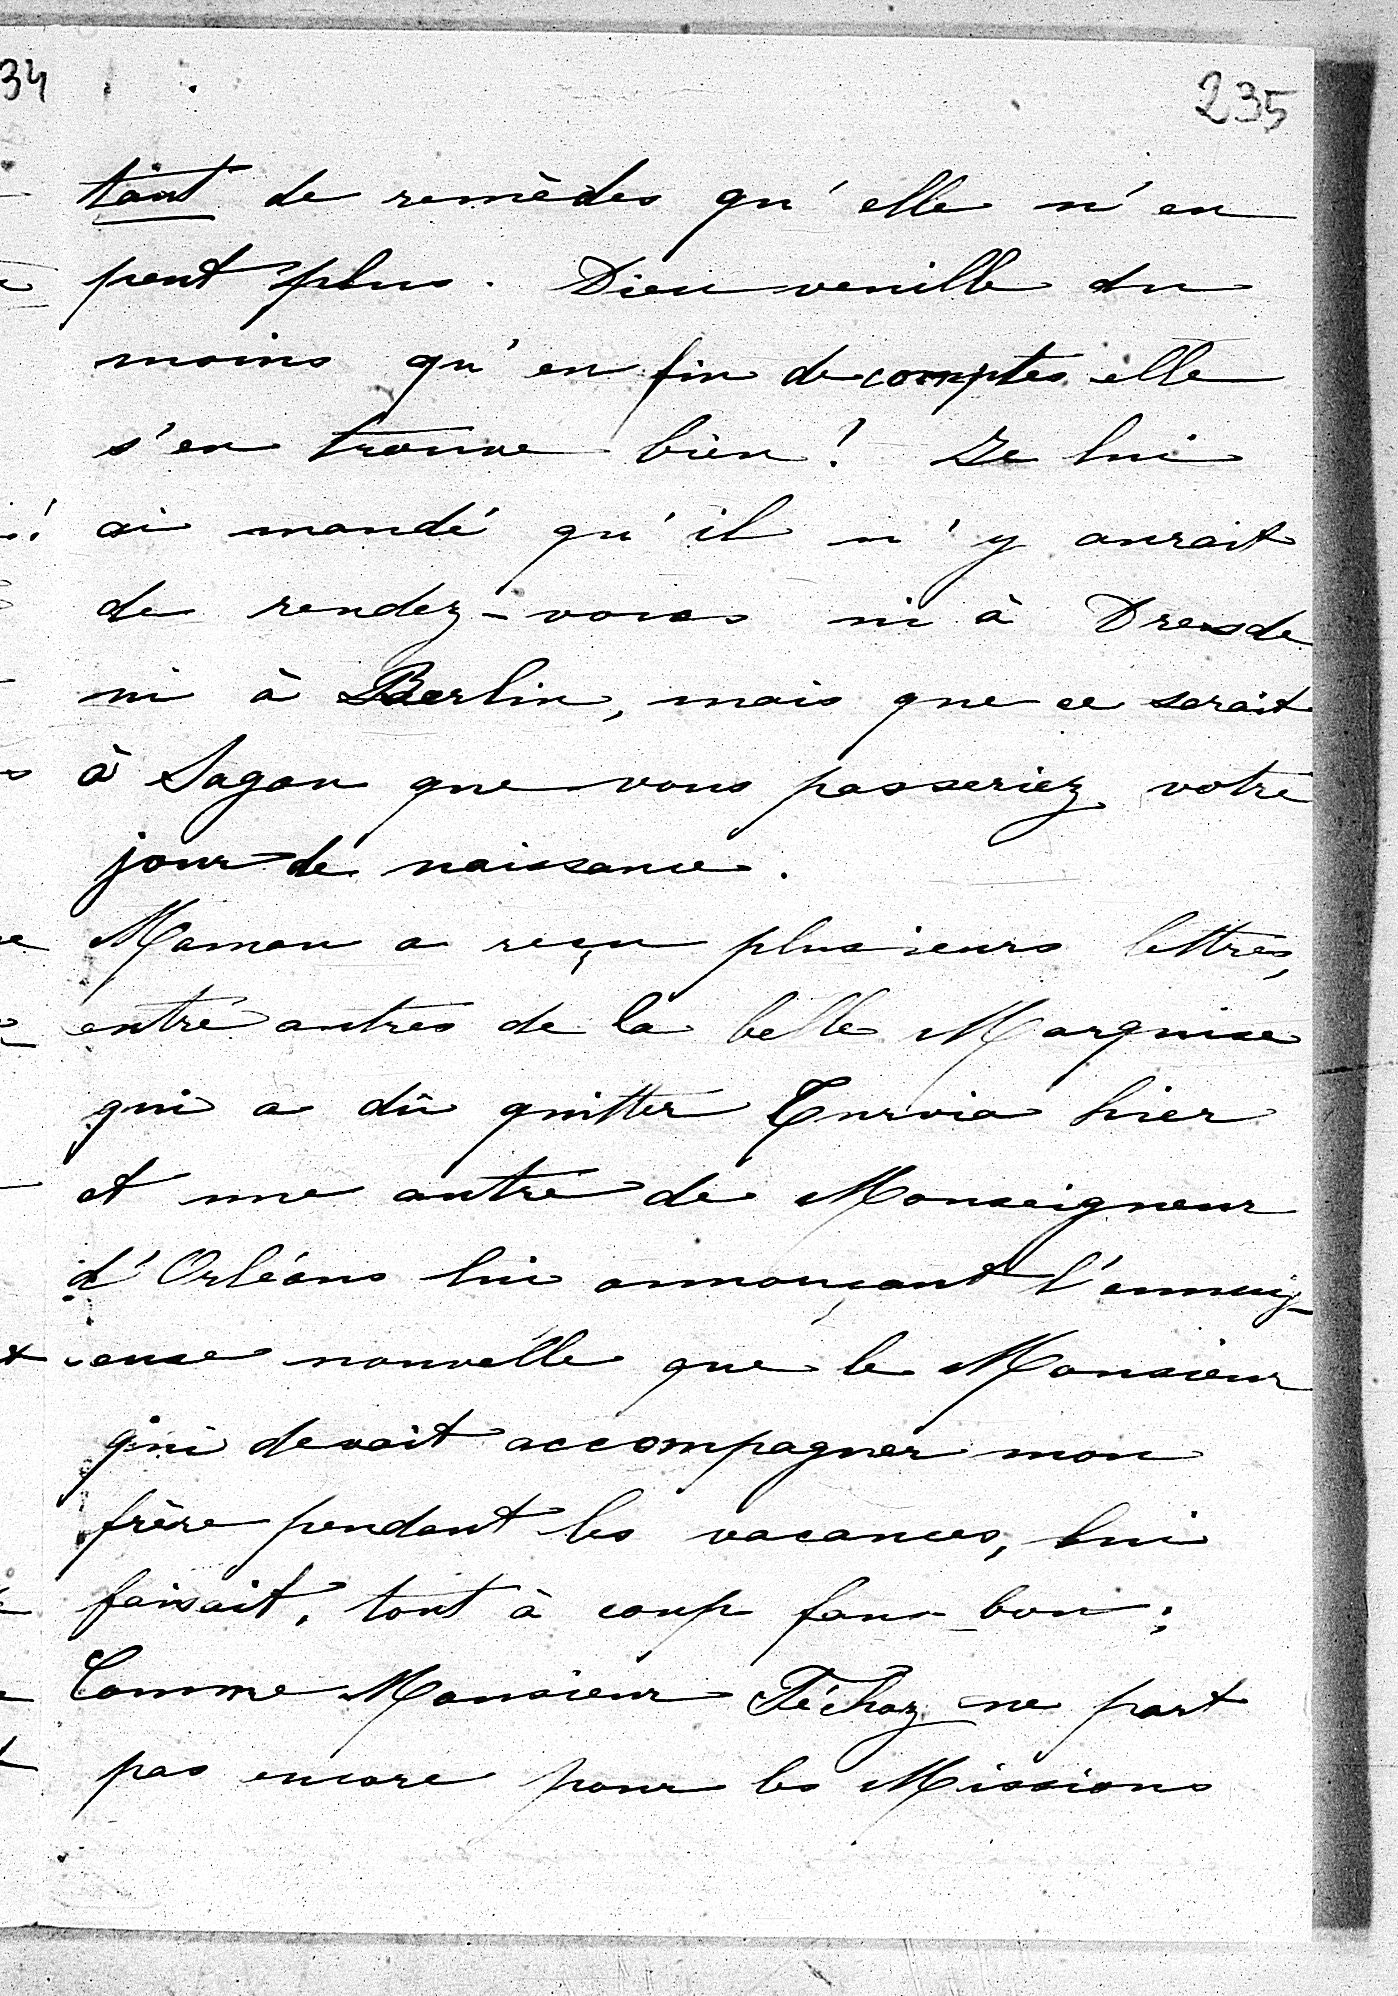 34
235
tant de remèdes qu'elle n'en
peut plus. Dieu veuille du
moins qu'en fin de comptes elle
s'en trouve bien! Je lui
ai mandé qu'il n'y aurait
de rendez-vous ni à Dresde
ni à Berlin, mais que ce serait
à Sagan que vous passeriez votre
jour de naissance.
Maman a reçu plusieurs lettres,
entre autres de la belle Marquise
qui a dû quitter Turvia hier
et une autre de Monseigneur
d'Orléans lui annonçant l'ennuy-
euse nouvelle que le Monsieur
qui devait accompagner mon
frère pendant les vacances, lui
faisait, tout à coup faux-bon;
Comme Monsieur Téchoz ne part
pas encore pour les Missions